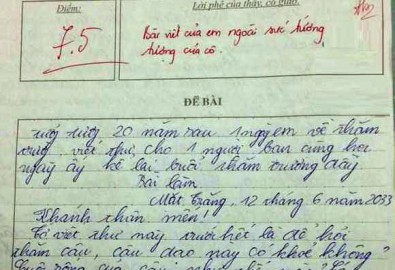 Điểm:
Lời phê của thầy, cô giáo:
7.5
Bài viết của em ngoài sức tưởng
tượng của cô.
ĐỀ BÀI
20 năm sau 1 ngày em về thăm
trường viết thư cho 1 người bạn cùng học
ngày ấy kể lại buổi thăm trường đầy
Bài làm
Mặt Trăng, 12 tháng 6 năm 2033
Khánh thân mến!
Tớ viết thư này trước hết là để hỏi
thăm cậu, cậu dạo này có khoẻ không?